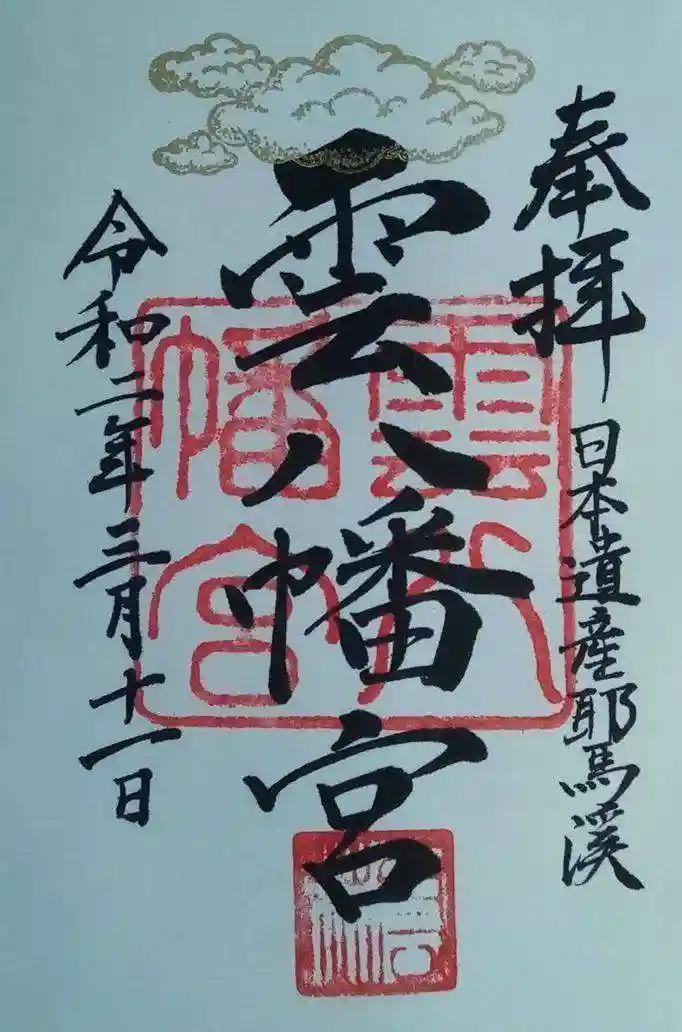 奉拝
日本遺産耶馬溪
雲八幡宮
雲八
幡宮
令和二年三月十一日